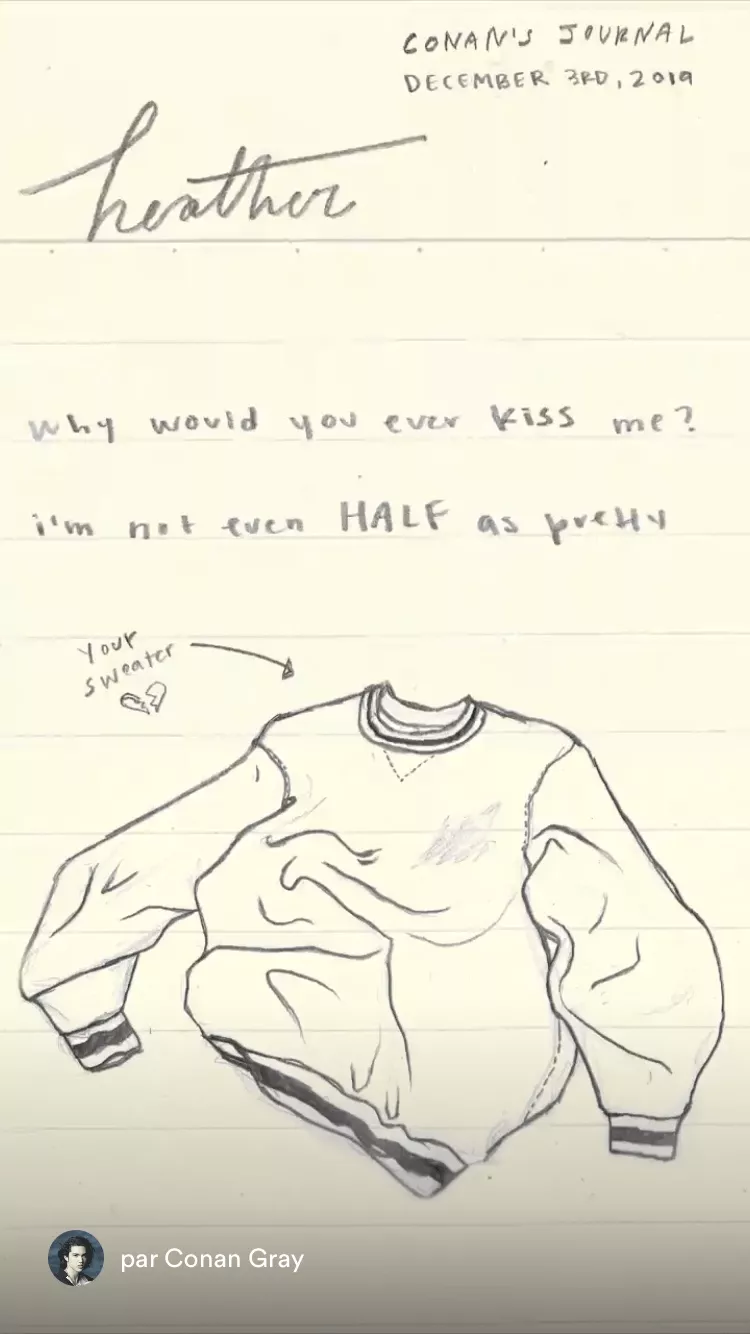 CONAN'S JOURNAL
DECEMBER 3RD, 2019
heather
why would you ever kiss me?
i'm not even HALF as pretty
your
sweater
par Conan Gray